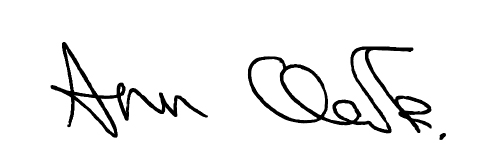 Ann Clarke.